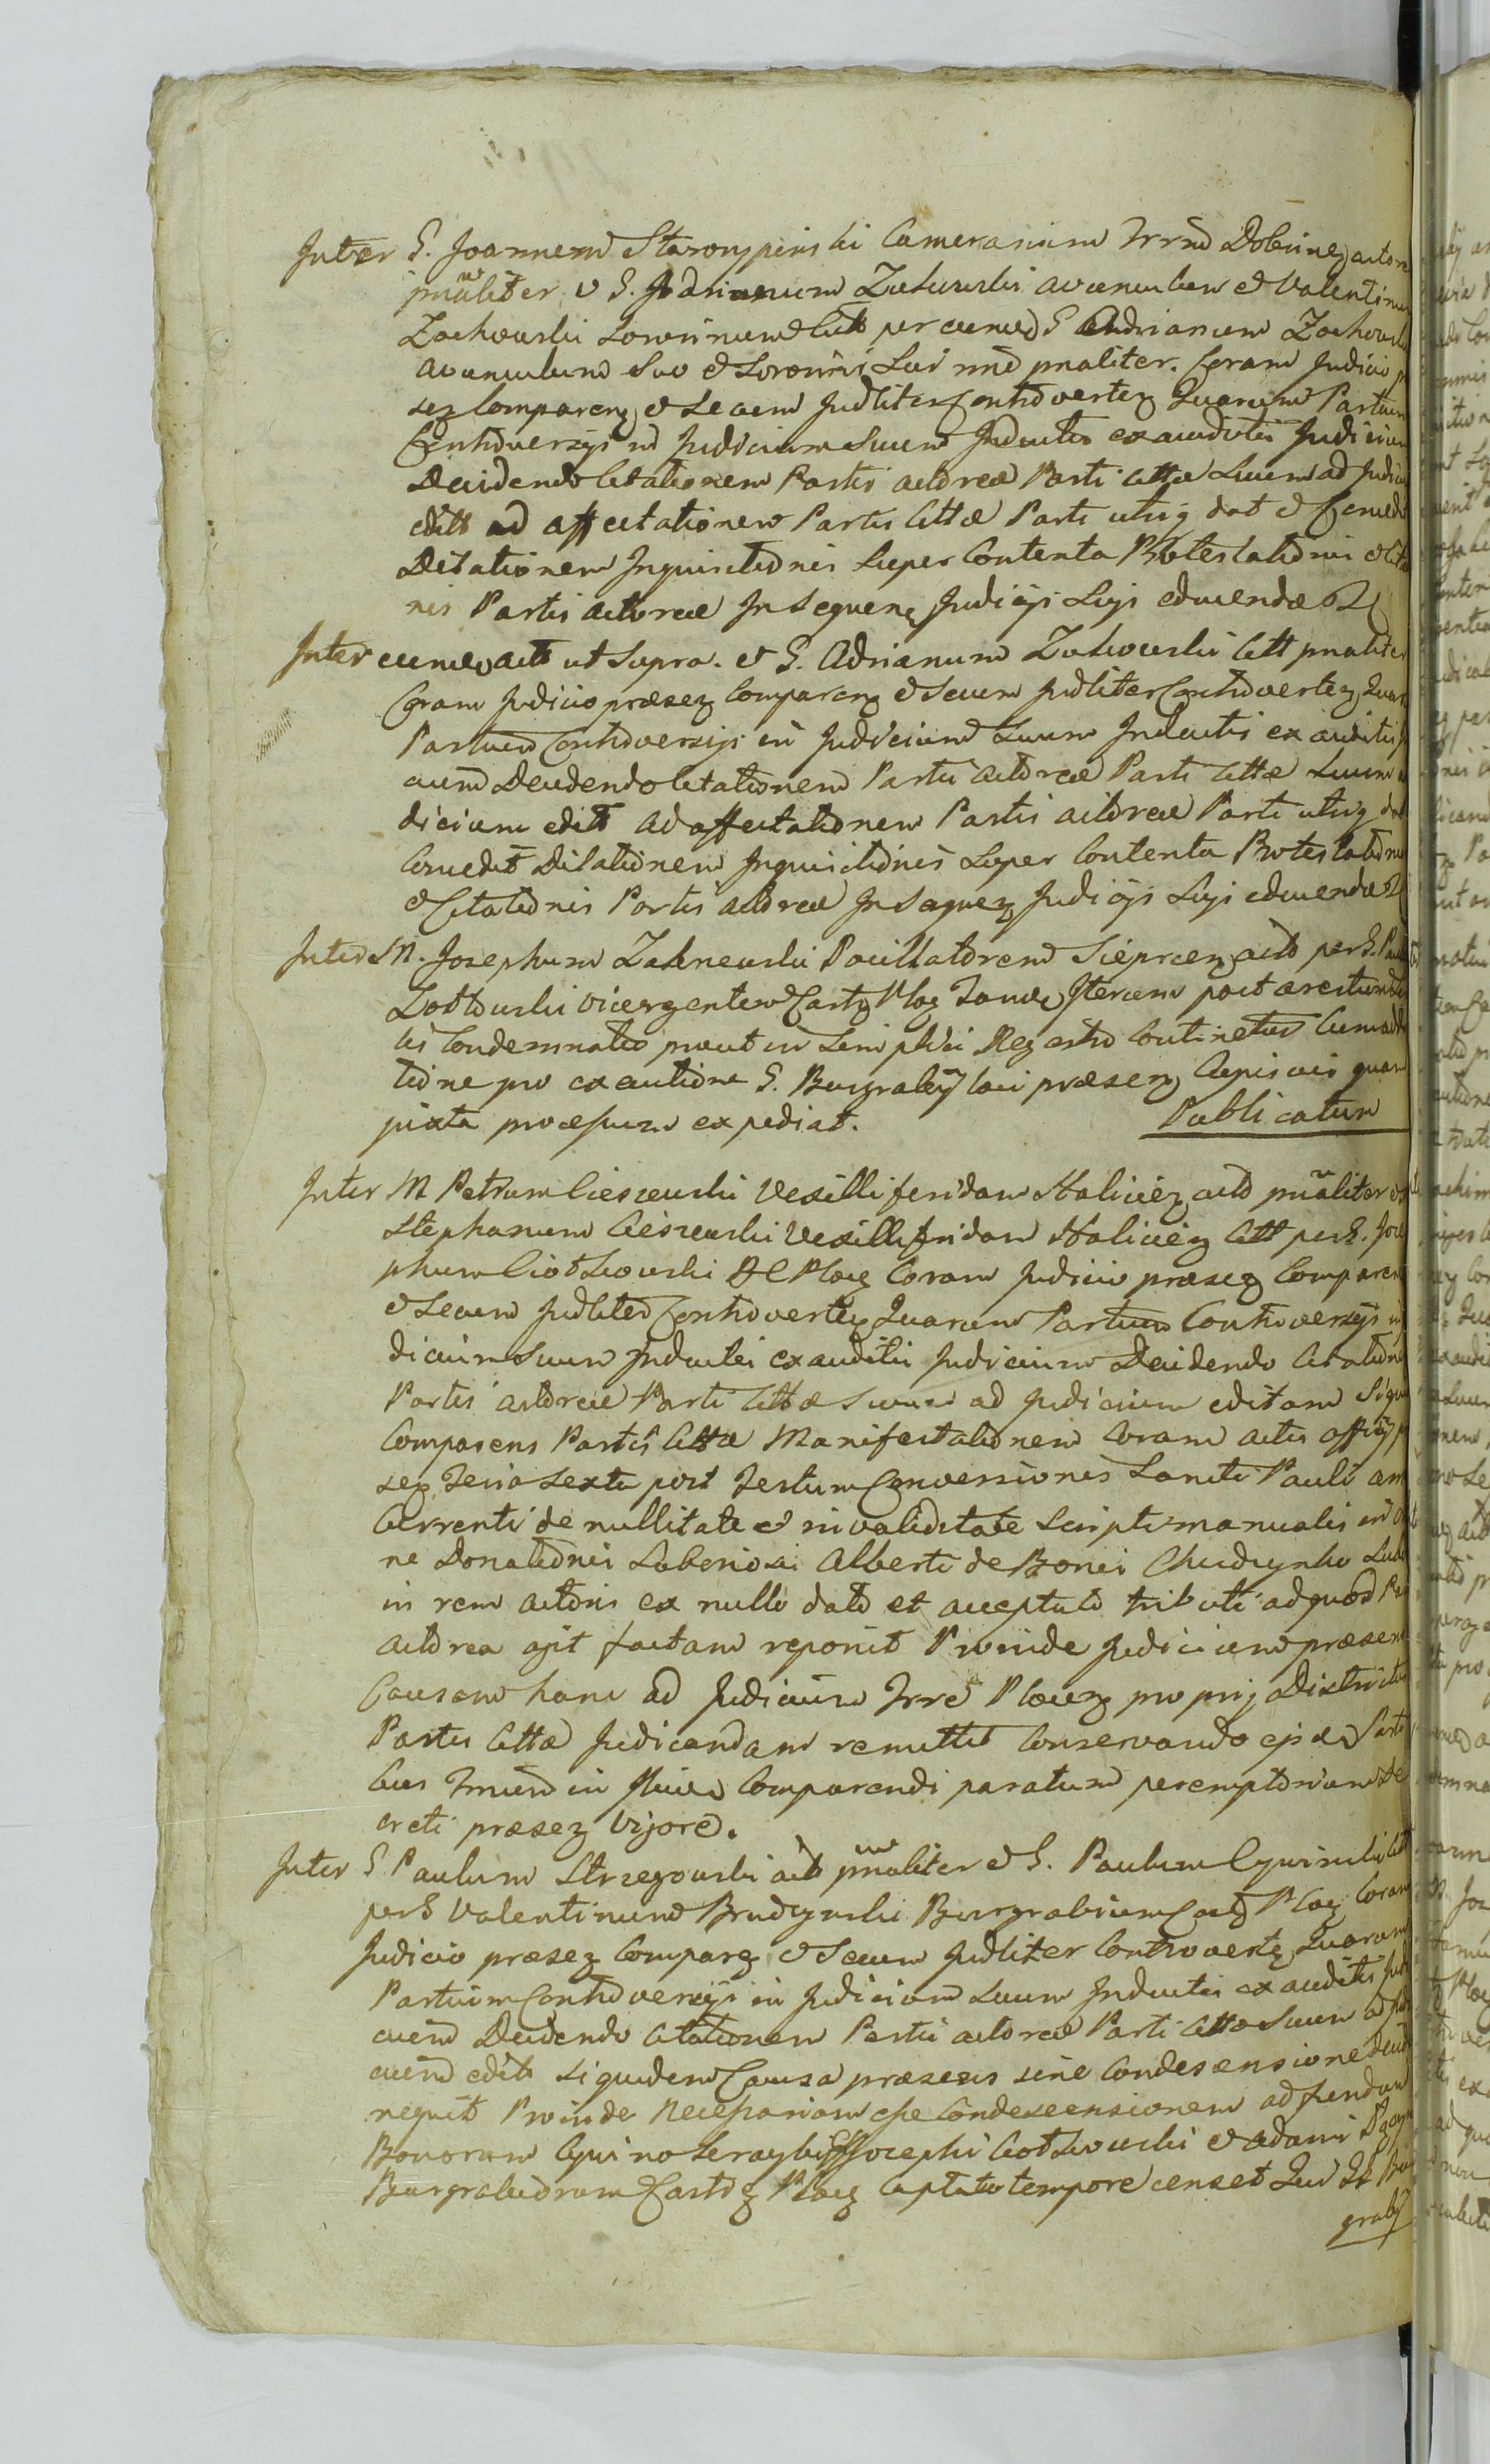 Inter G. Joannem Starorypinski Camerarium Trrae Dobrinez actore
pnaliter v G. Adrianum Zochowski avunculum et Valentinum
Zochowski Sororinum Citt per eumd G Adrianum Zochowski
avunculum suo et Sororini sui nne pnaliter. Coram Judicio p
sez Comparenz et Secum Judliter Controvertez Quarum Partium
Controversijs in Judicium suum Inductis exauditis Judicium
Decidendo Citationem Partis actoreae Parti Cittae suum ad Judici
edit ad affectationem Partis Cittae Parti utriq dat et Concedit
Dilationem Inquisitionis super Contenta Protestationis et Cita
nis Partis actoreae In Sequenz Judicijs Sijs educendae
Inter eumd act ut Supra. et G. Adrianum Zochowski Citt pnaliter
Coram Judicio praesez Comparenz et Secum Judliter Controvertez Quar
Partium Controversijs in Judicium suum Inductis exauditis J
cium Decidendo Citationem Partis actoreae Parti Cittae suum a
dicium edit ad affectationem Partis actoreae Parti utriq dat
Concedit Dilationem Inquisitionis super Contenta Protestationis
et Citationis Partis actoreae In Sequez Judicijs Sijs educendae
Inter M. Josephum Zakrzewski Pocillatorem Sieprcez act per G. Paul
vicesgerentem Castr Ploc Iterum post arestum
lis Condemnatio prout in Simplici Regestro Continetur Cum addi
tione pro executione G. Burgrabij loci praesez quam
juxta processum expediat. Publicatum
Inter M Petrum Cieszewski Vexilliferidam Haliciez act pnaliter et
Stephanum Cieszewski Vexilliferidam Haliciez Citt per G. Jose
phum Ciotkowski Ploc Coram Judicio praesez Comparenz
et Secum Judliter Controvertez Quarum Partium Controversijs in
dicium suum Inductis exauditis Judicium Decidendo Citatione
Partis actoreae Parti Cittae suum ad Judicium editam Siqui
Comparens Partis Cittae Manifestationem Coram actis officij p
sez Feria Sexta post Festum Conversionis Sancti Pauli ann
Currenti de nullitate et invaliditate Scripti manualis in
ne Donationis Laboriosi Alberti de Bonis
in rem actoris ex nullo dato et acceptato tributi ad quod Pa
actorea agit factam reponit Proinde Judicium praesens
Causam hanc ad Judicium Trrae Plocez pro prij Districtus
Partis Cittae Judicandam remittit Conservando ejsd Parti
bus Trnum in Comparendi paratum peremptorium De
creti praesez vigore.
Inter G Paulum Strzegowski act pnaliter et G. Paulum Cywinski Citt
per G Valentinum Brudzynski Burgrabium Castr Ploc Coram
Judicio praesez Comparz et Secum Judliter Controvertz Quarum
Partium Controversijs in Judicium suum Inductis exauditis Jud
cium Decidendo Citationem Partis actoreae Parti Cittae suum ad Jud
cium edit Siquidem Causa praesens sine Condescensione decid
nequit Proinde Necessariam esse Condescensionem ad fundum
Bonorum Josephi Ciotkowski et Adami
Burgrabiorum Castr Ploc captato tempore censet Qui
grabij